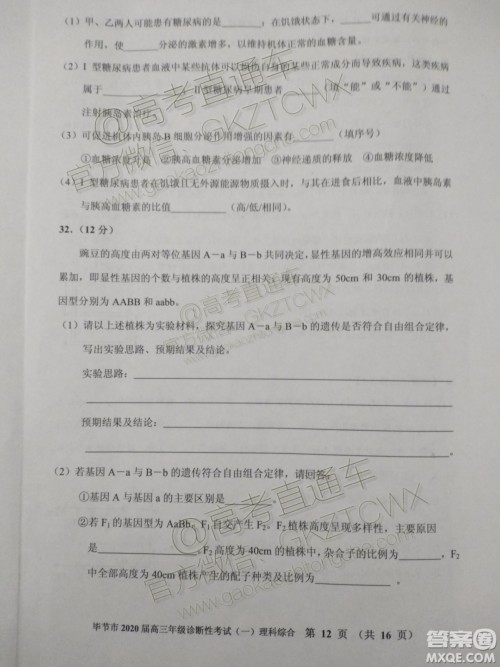 (1)甲、乙两人可能患有糖尿病的是________，在饥饿状态下，________可通过有关神经的
作用，使________分泌的激素增多，以维持机体正常的血糖含量。
(2)Ⅰ型糖尿病患者血液中某些抗体可以破坏自身的正常成分而导致疾病，此类疾病
属于________。Ⅱ型糖尿病早期患者________(填“能”或“不能”)通过
注射胰岛素治疗。
(3)可促进机体内胰岛B细胞分泌作用增强的因素有________(填序号)
①血糖浓度升高 ②胰高血糖素 ③神经递质的释放 ④血糖浓度降低
(4)Ⅰ型糖尿病患者在饥饿且无外源能源物质摄入时，与其在进食后相比，血液中胰岛素
与胰高血糖素的比值________(高/低/相等)。
32.(12分)
豌豆的高度由两对等位基因A－a与B－b共同决定，显性基因的增高效应相同并可以
累加，即显性基因的个数与植株的高度呈正相关；现有高度为50cm和30cm的植株，基
因型分别为AABB和aabb。
(1)请以上述植株为实验材料，探究基因的遗传是否符合自由组合定律，
写出实验思路、预期结果及结论。
实验思路：
预期结果及结论：
(2)若基因A－a与B－b的遗传符合自由组合定律，请回答：
①基因A与基因a的主要区别是________。
②若F₁的基因型为AaBb，F₁自交产生F₂，F₂植株高度呈现多样性，主要原因
是________，高度为40cm的植株中，杂合子的比例为________，F₂
中全部高度为40cm植株产生的配子种类及比例为________。
毕节市2020届高三年级诊断性考试(一)理科综合 第12页 (共16页)
@高考直通车
官方微信：GKZTCWX
@高考直通车
官方微信：GKZTCWX
@高考直通车
官方微信：GKZTCWX